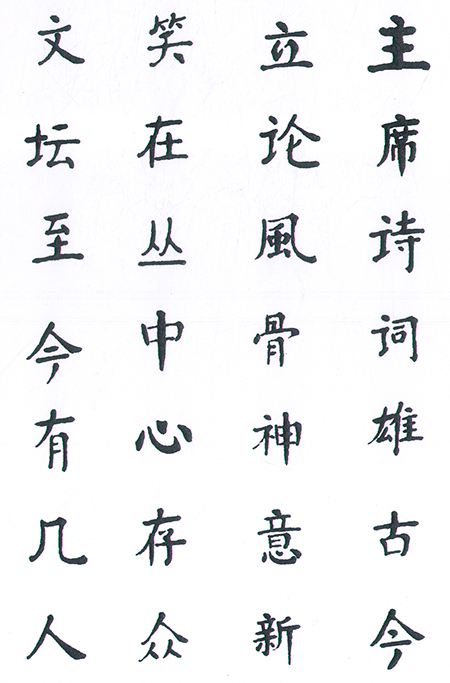 主席诗词雄古今
立论風骨神意新
笑在丛中心存众
文坛至今有几人